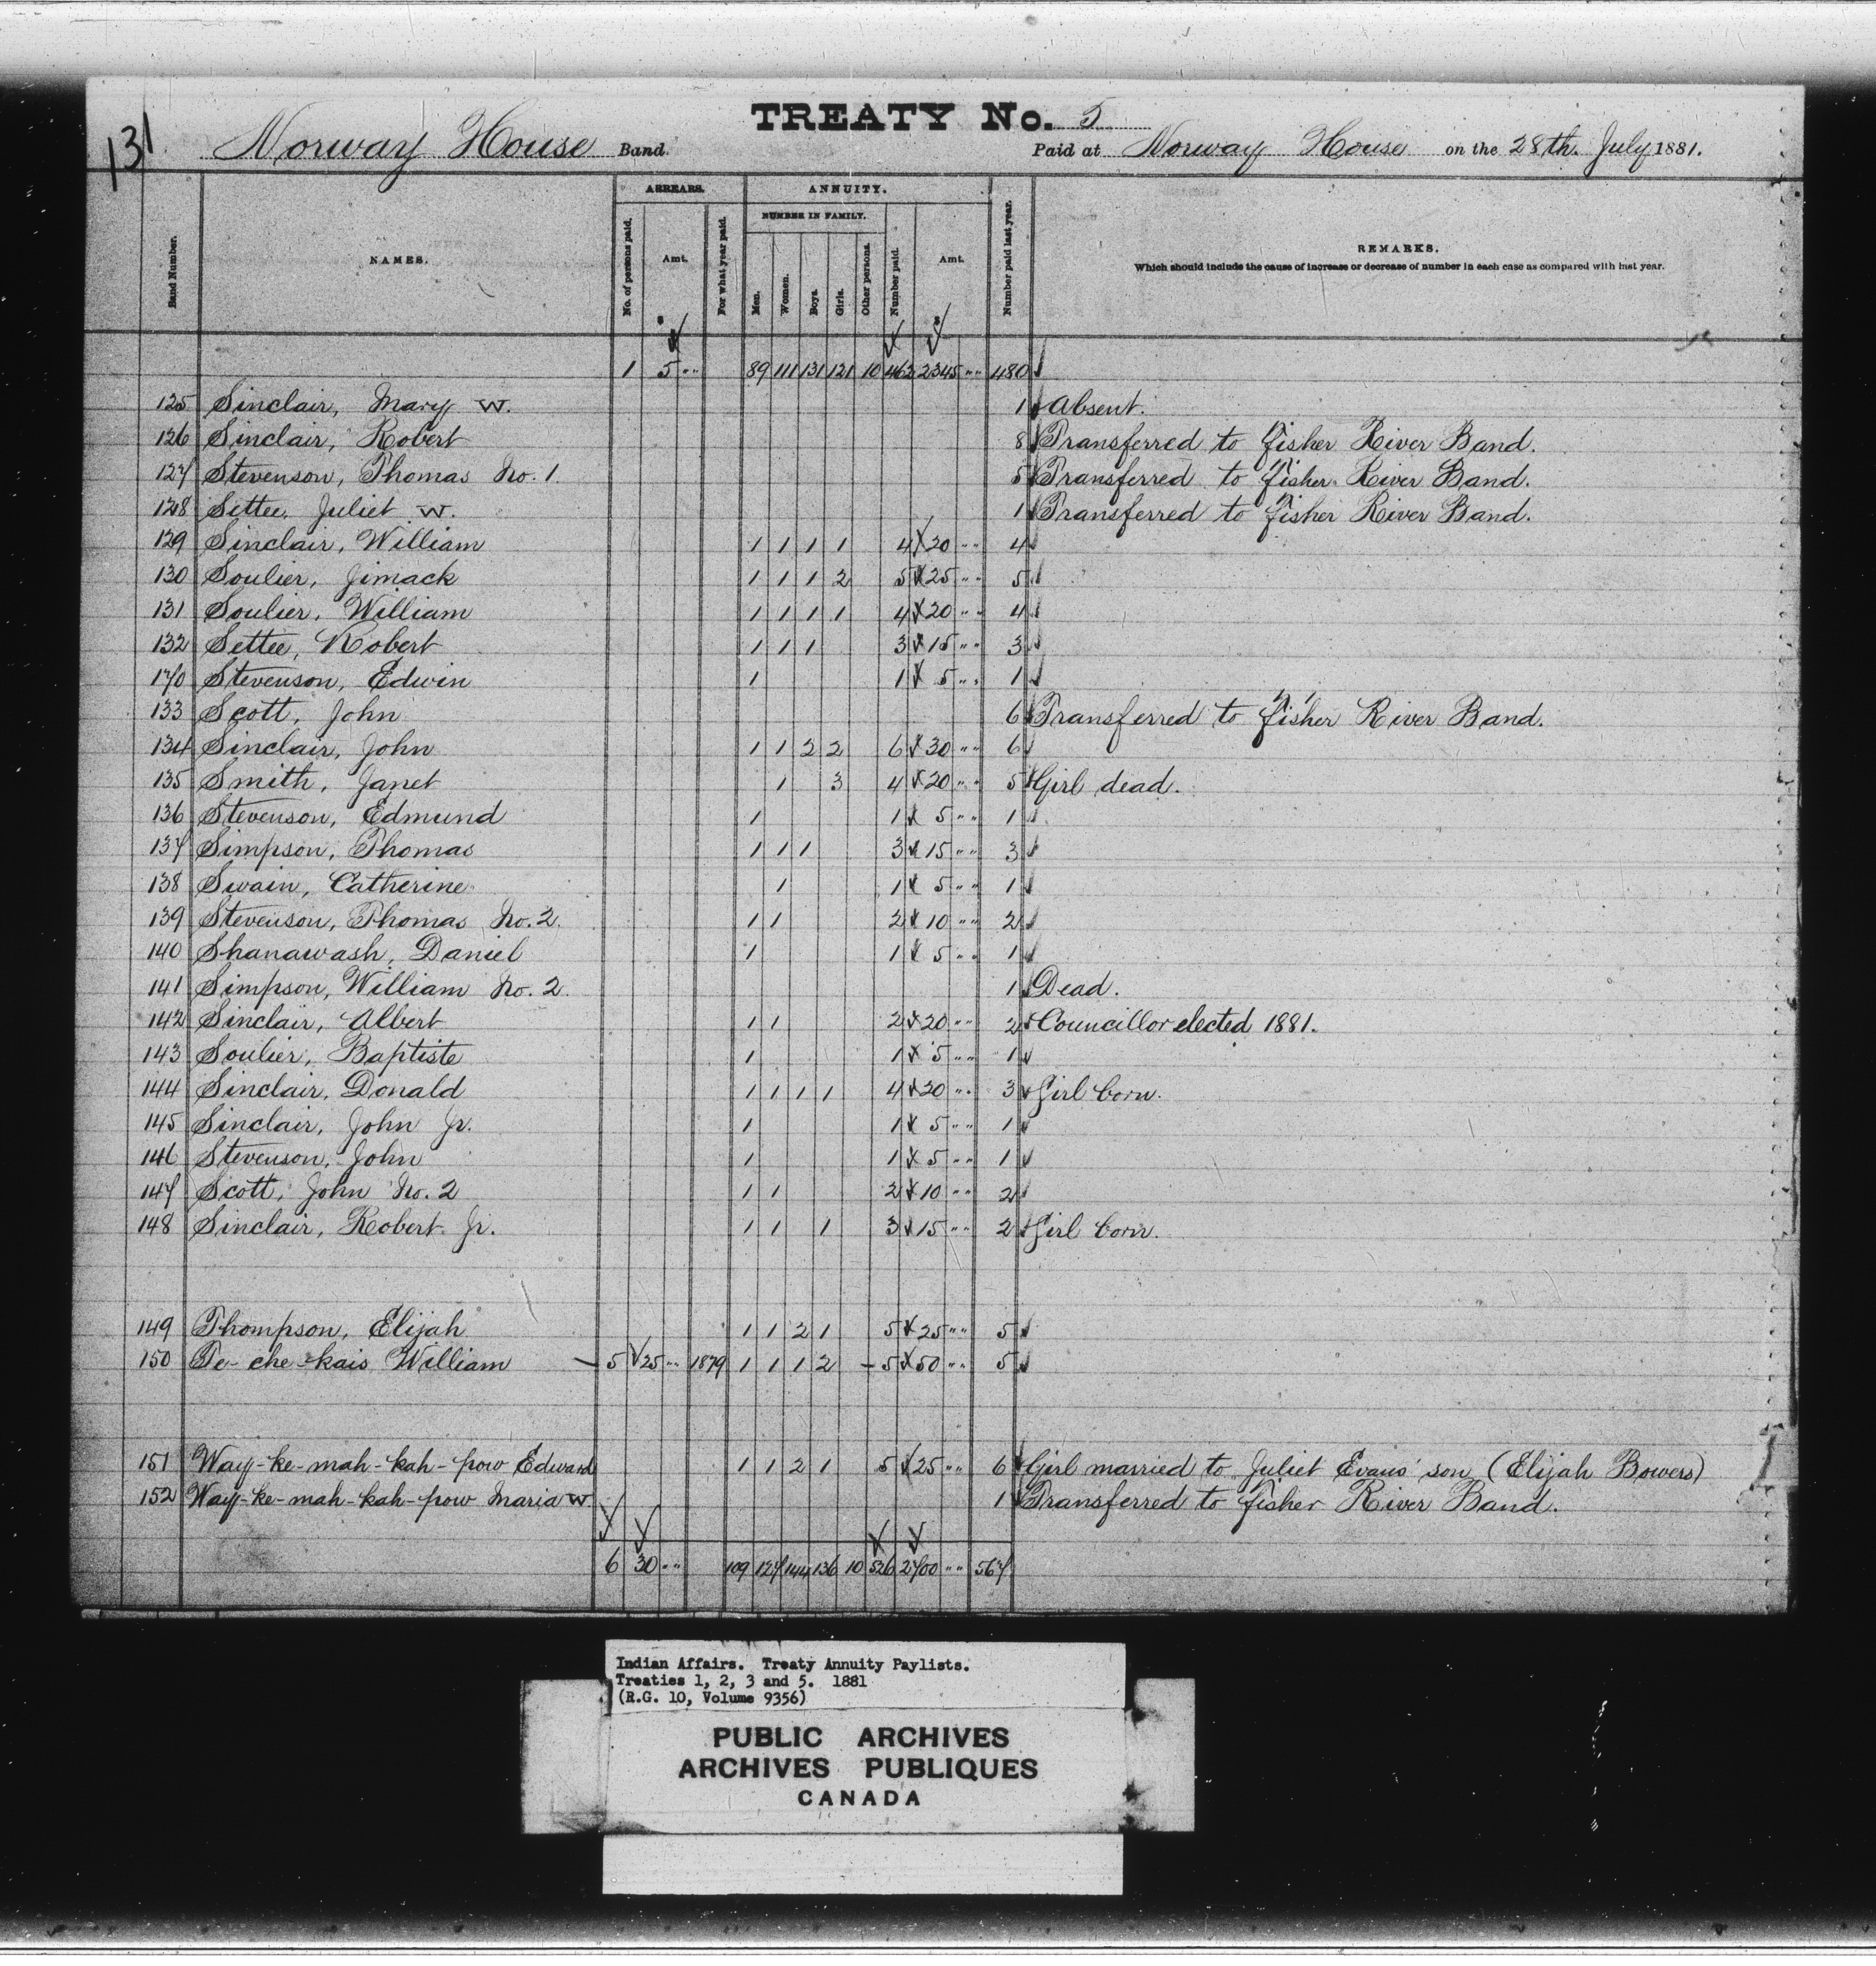 131
TREATY No. 5
Norway House Band. Paid at Norway House on the 28th. July 1881.
Band Number. NAMES. ARREARS. No. of persons paid. Amt. For what year paid. ANNUITY. NUMBER IN FAMILY. Men. Women. Boys. Girls. Other persons. Number paid. Amt. Number paid last year. REMARKS.
Which should include the cause of increase or decrease of number in each case as compared with last year.
1 5 " 89 111 131 121 10 462 2345 " 480
125 Sinclair, Mary W. 1 Absent.
126 Sinclair, Robert 8 Transferred to Fisher River Band.
127 Stevenson, Thomas No. 1 5 Transferred to Fisher River Band.
128 Settee, Juliet W. 1 Transferred to Fisher River Band.
129 Sinclair, William 1 1 1 1 4 20 " 4
130 Soulier, Jimack 1 1 1 2 5 25 " 5
131 Soulier, William 1 1 1 1 4 20 " 4
132 Settee, Robert 1 1 1 3 15 " 3
170 Stevenson, Edwin 1 1 5 " 1
133 Scott, John 6 Transferred to Fisher River Band.
134 Sinclair, John 1 1 2 2 6 30 " 6
135 Smith, Janet 1 3 4 20 " 5 Girl dead.
136 Stevenson, Edmund 1 1 5 " 1
137 Simpson, Thomas 1 1 1 3 15 " 3
138 Swain, Catherine 1 1 5 " 1
139 Stevenson, Thomas No. 2. 1 1 2 10 " 2
140 Shanawash, Daniel 1 1 5 " 1
141 Simpson, William No. 2. 1 Dead.
142 Sinclair, Albert 1 1 2 20 " 2 Councillor elected 1881.
143 Soulier, Baptiste 1 1 5 " 1
144 Sinclair, Donald 1 1 1 1 4 20 " 3 Girl born.
145 Sinclair, John Jr. 1 1 5 " 1
146 Stevenson, John 1 1 5 " 1
147 Scott, John No. 2 1 1 2 10 " 2
148 Sinclair, Robert Jr. 1 1 1 3 15 " 2 Girl born.
149 Thompson, Elijah 1 1 2 1 5 25 " 5
150 Te-che-kais William 5 25 " 1879 1 1 1 2 5 50 " 5
151 Way-ke-mah-kah-pow Edward 1 1 2 1 5 25 " 6 Girl married to Juliet Evans' son (Elijah Bowers)
152 Way-ke-mah-kah-pow Maria W. 1 Transferred to Fisher River Band.
6 30 " 109 127 144 136 10 526 2700 " 567
Indian Affairs. Treaty Annuity Paylists.
Treaties 1, 2, 3 and 5. 1881
(R.G. 10, Volume 9356)
PUBLIC ARCHIVES
ARCHIVES PUBLIQUES
CANADA